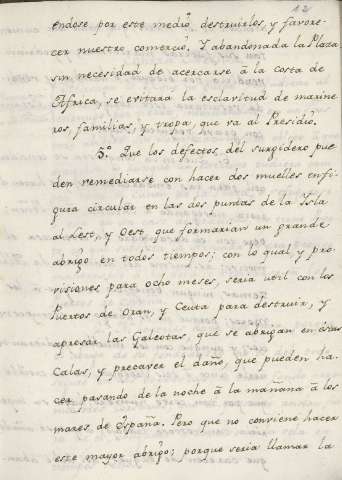 12
éndose por este medio, destruirlos, y favore-
cer nuestro comercio. Y abandonada la Plaza
sin necesidad de acercarse â la costa de
Africa, se evitará la esclavitud de marine
ros, familias, y tropa, que va al Presidio.
5.º Que los defectos, del surgidero pue
den remediarse con hacer dos muelles en fi-
gura circular en las dos puntas de la Isla
al Lest, y Oest que formarían un grande
abrigo en todos tiempos; con lo qual y pro-
visiones para ocho meses, seria util con los
Puertos de Oran, y Ceuta para destruir, y
apresar las Galeotas, que se abrigan en estas
Calas, y precaver el daño, que pueden ha-
cer pasando de la noche â la mañana â los
mares de España. Pero que no conviene hacer
este mayor abrigo; porque seria llamar la